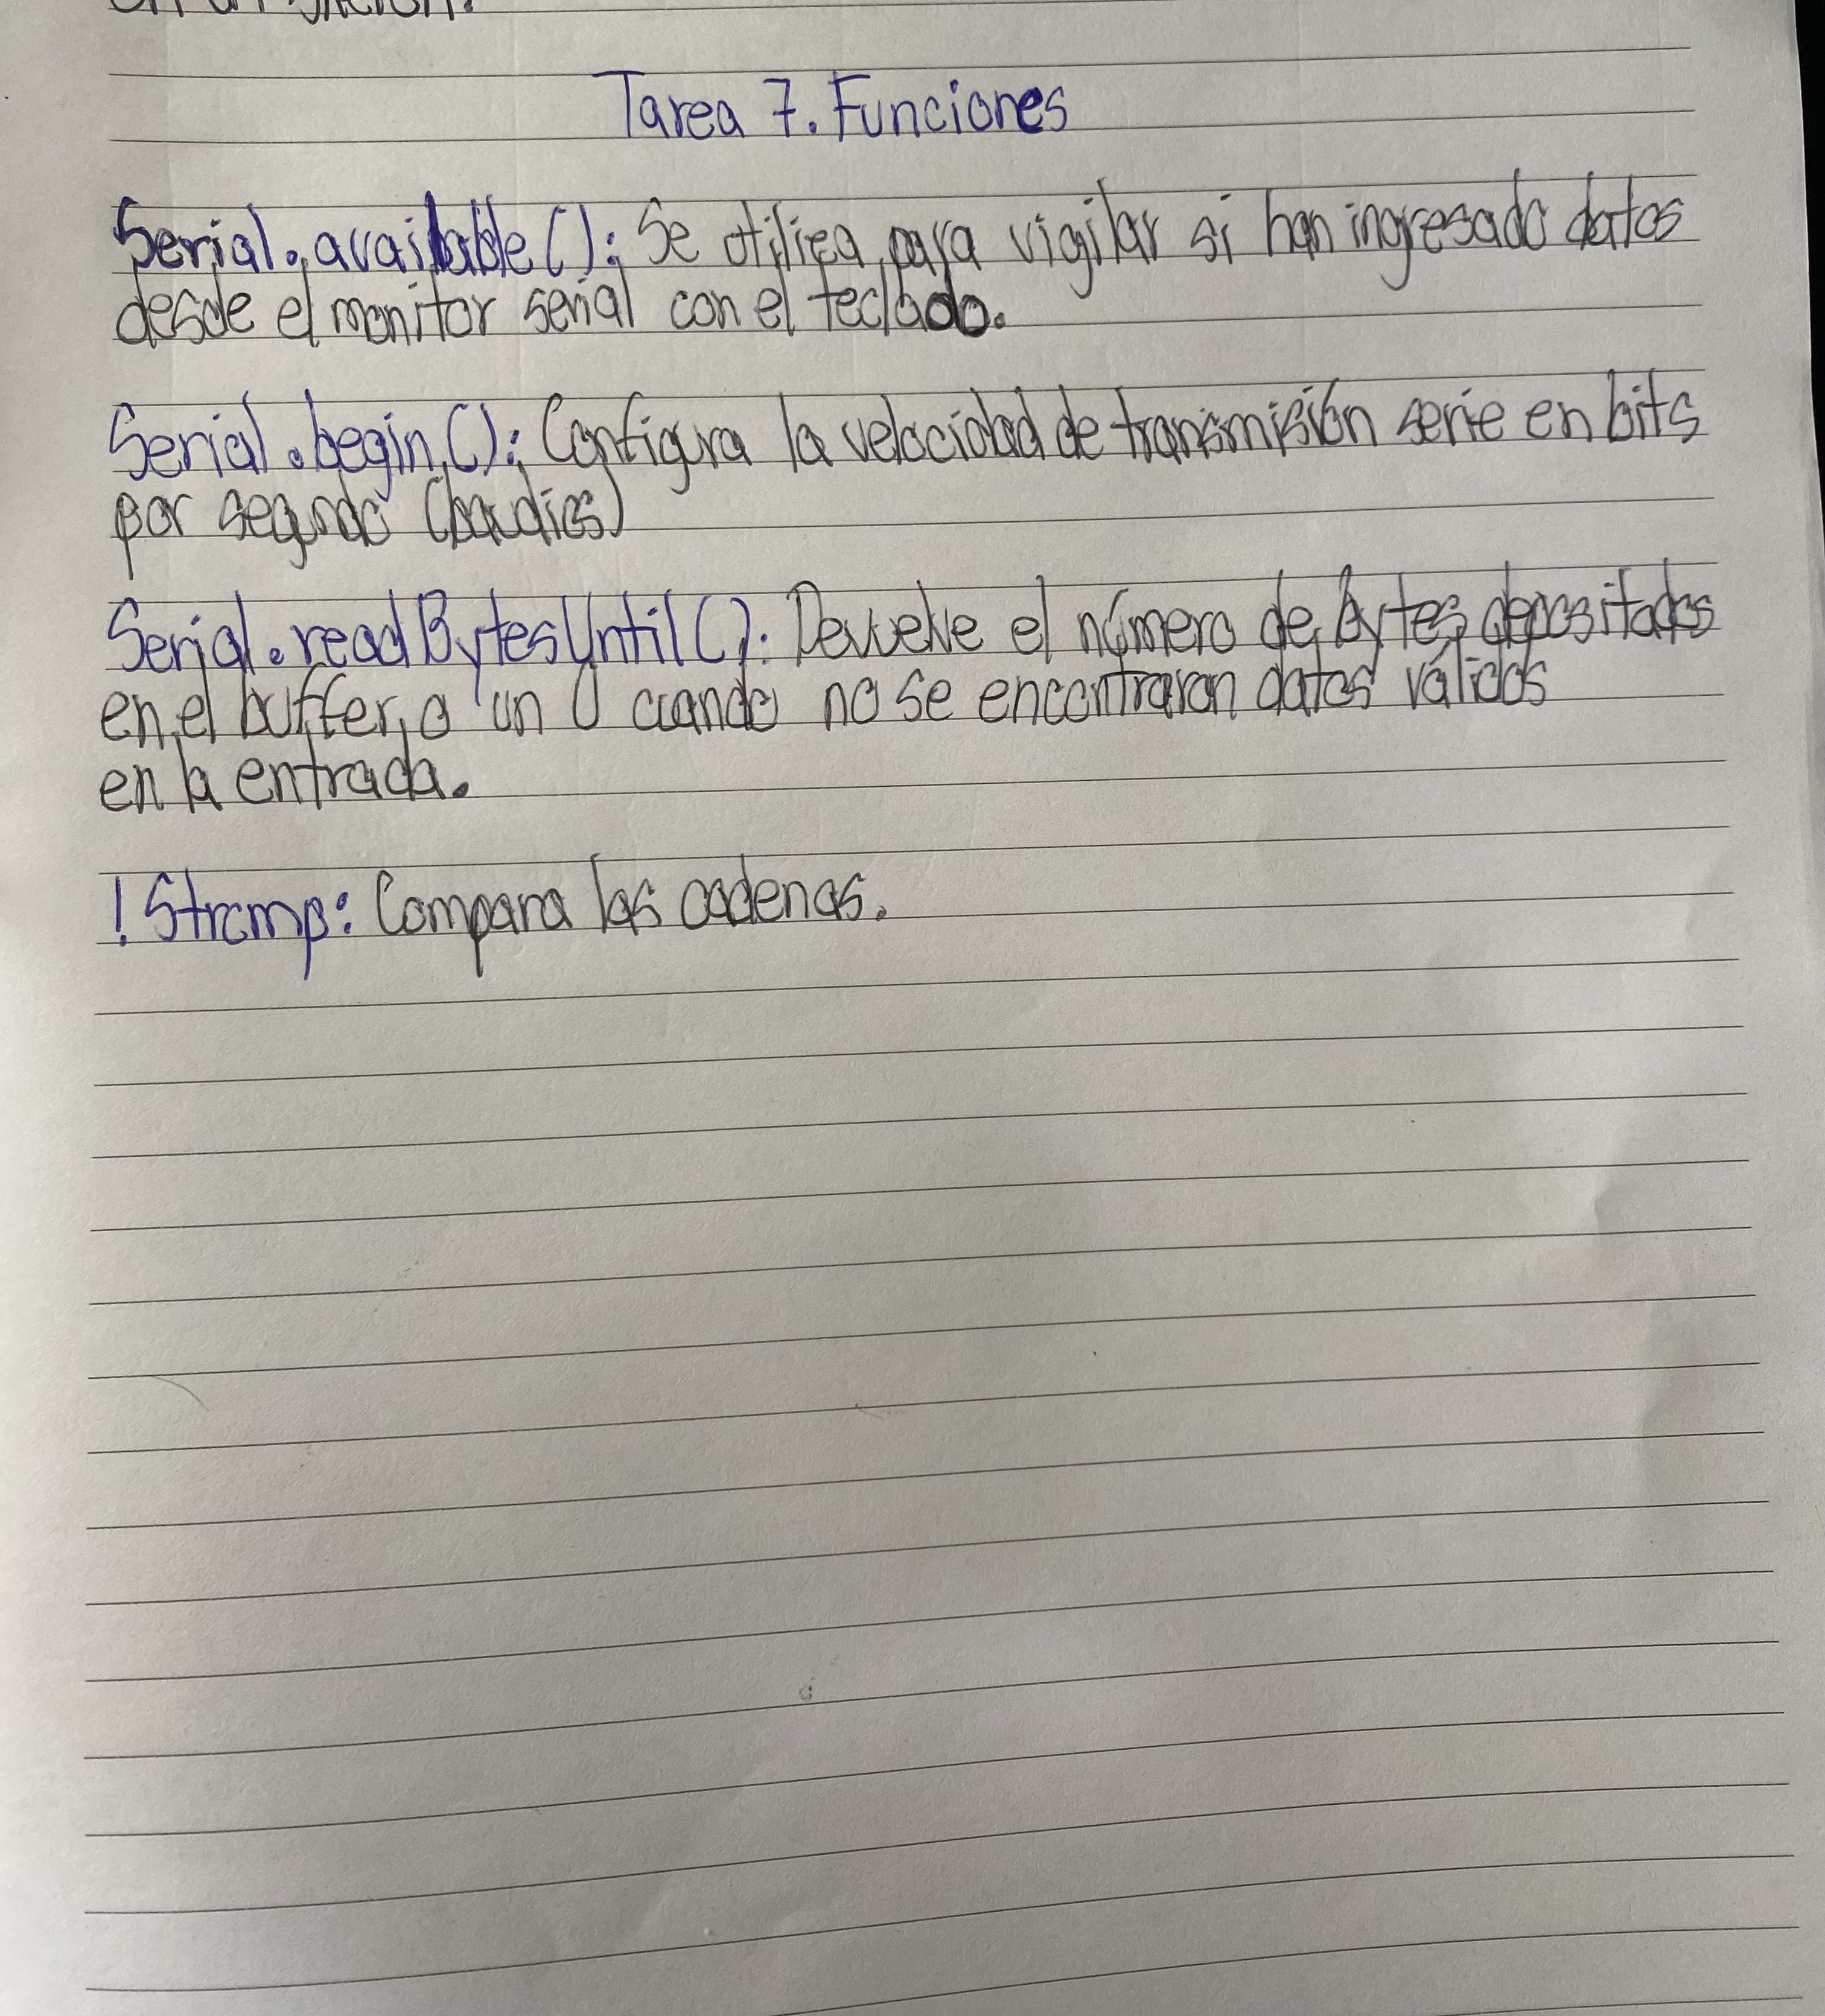 Tarea 7. Funciones
Serial.available(): Se utiliza para vigilar si han ingresado datos
desde el monitor serial con el teclado.
Serial.begin(): Configura la velocidad de transmisión serie en bits
por segundo (baudios)
Serial.readBytesUntil(): Devuelve el número de bytes depositados
en el buffer, o un 0 cuando no se encontraron datos válidos
en la entrada.
!Strcmp: Compara las cadenas.